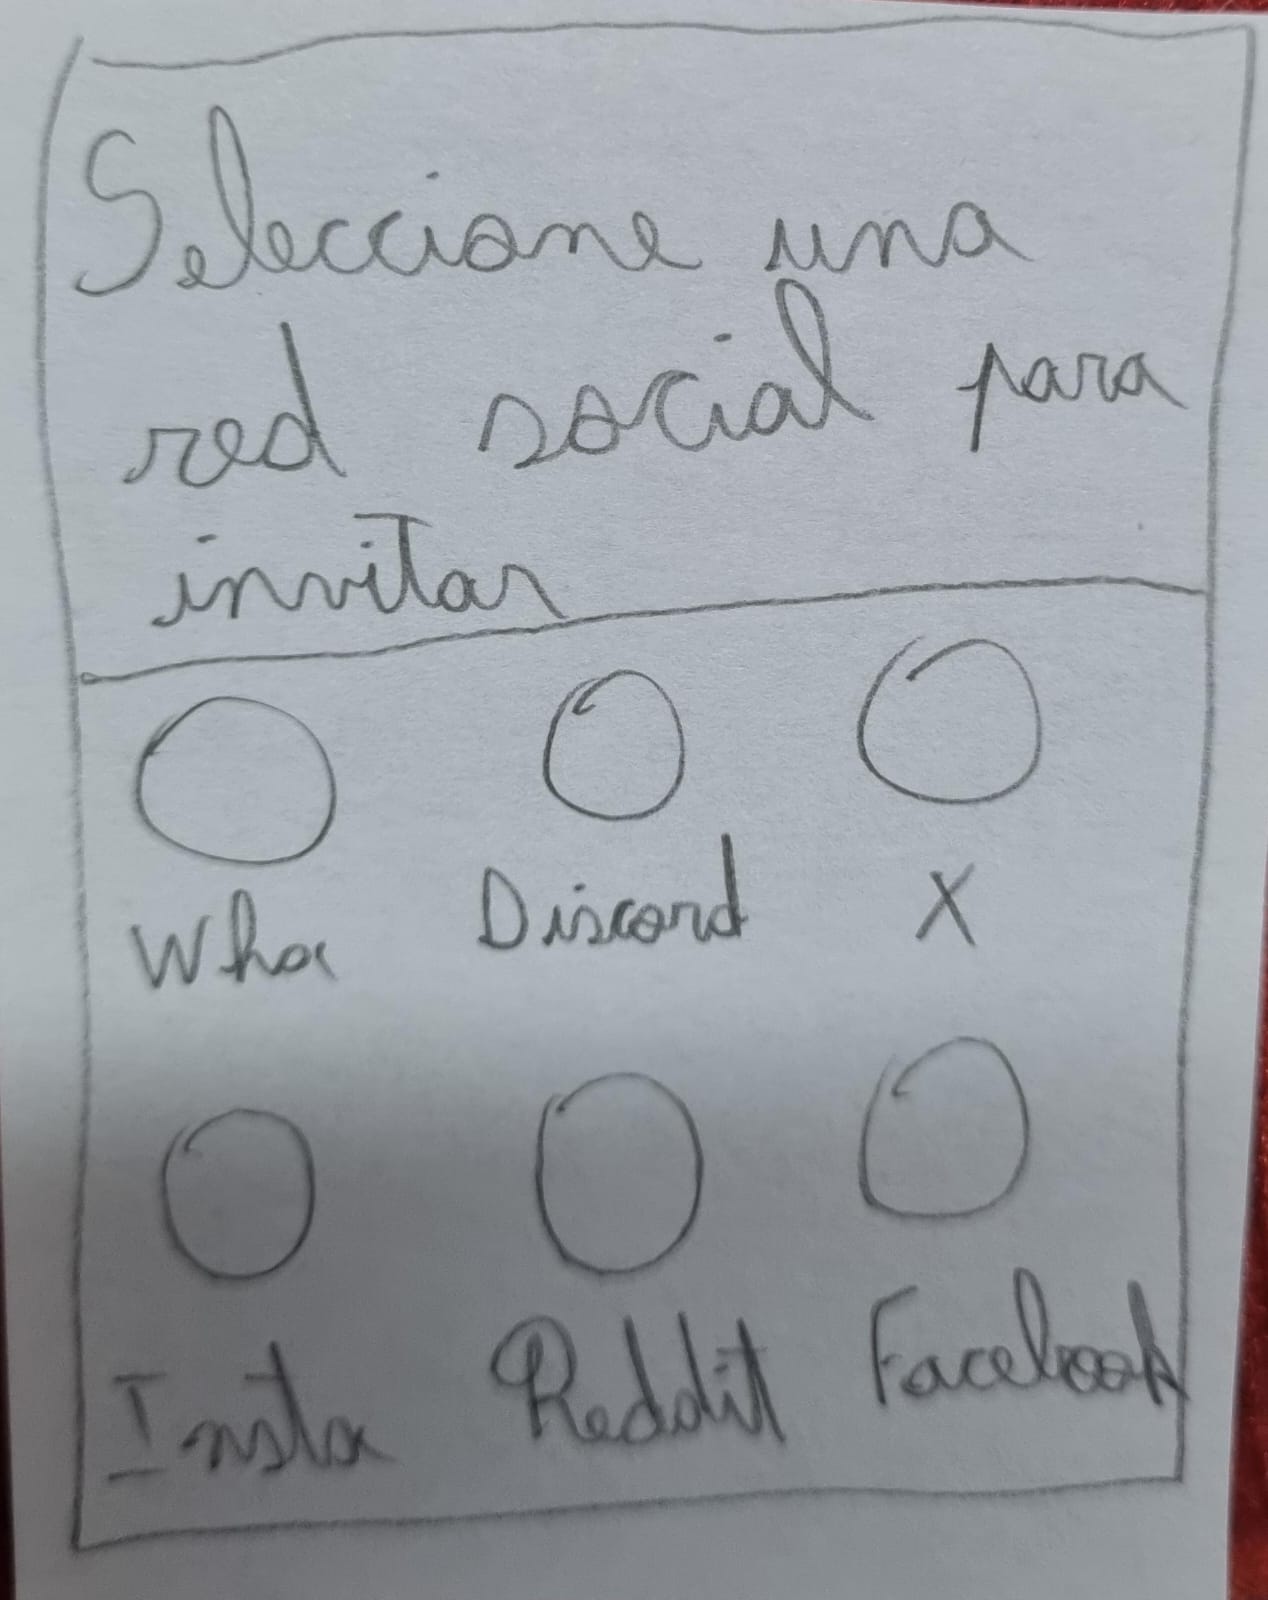 Seleccione una
red social para
invitar
Wha Discord X
Insta Reddit Facebook